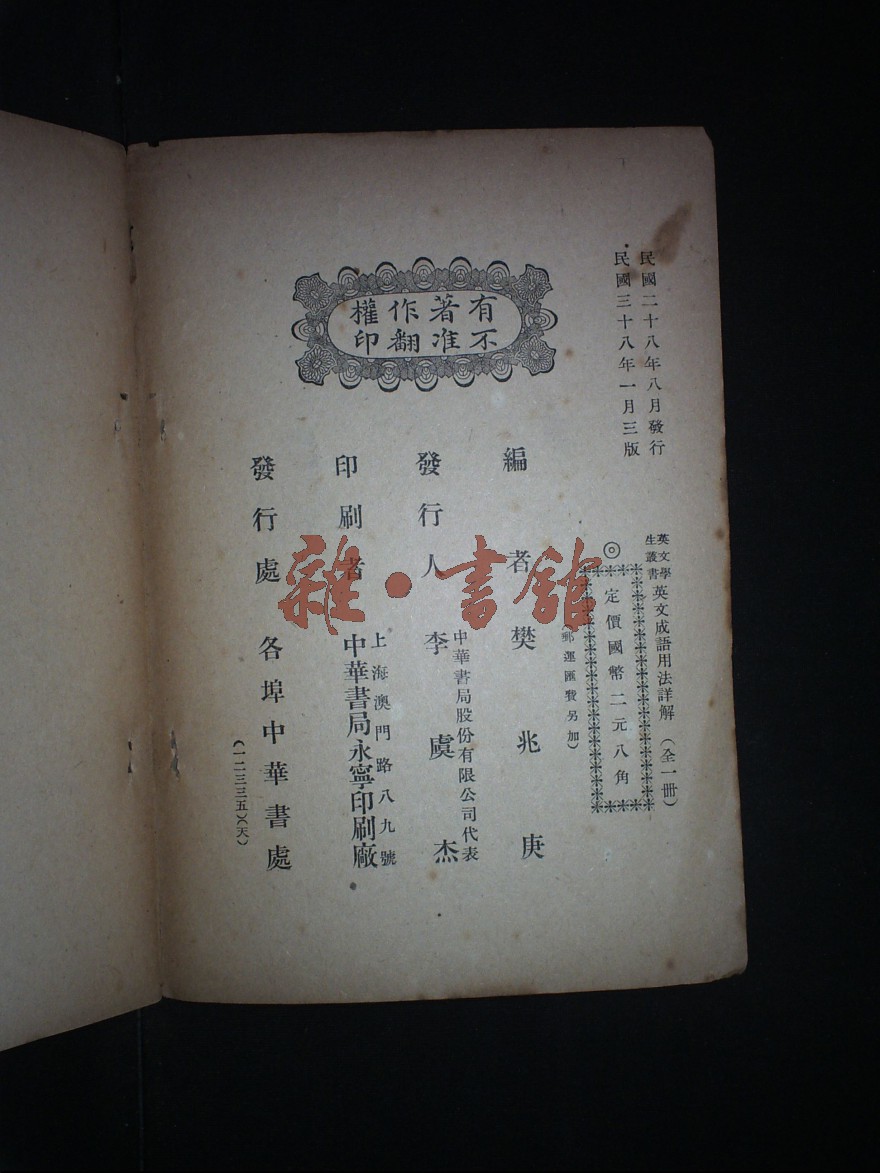 民國二十八年八月發行
民國三十八年一月三版
有著作權
不准翻印
英文學生叢書
英文成語用法詳解(全一冊)
◎定價國幣二元八角
(郵運匯費另加)
編者 樊兆庚
中華書局股份有限公司代表
發行人 李虞杰
上海澳門路八九號
印刷者 中華書局永寧印刷廠
發行處 各埠中華書處
(一二三三五)(天)
雜·書館